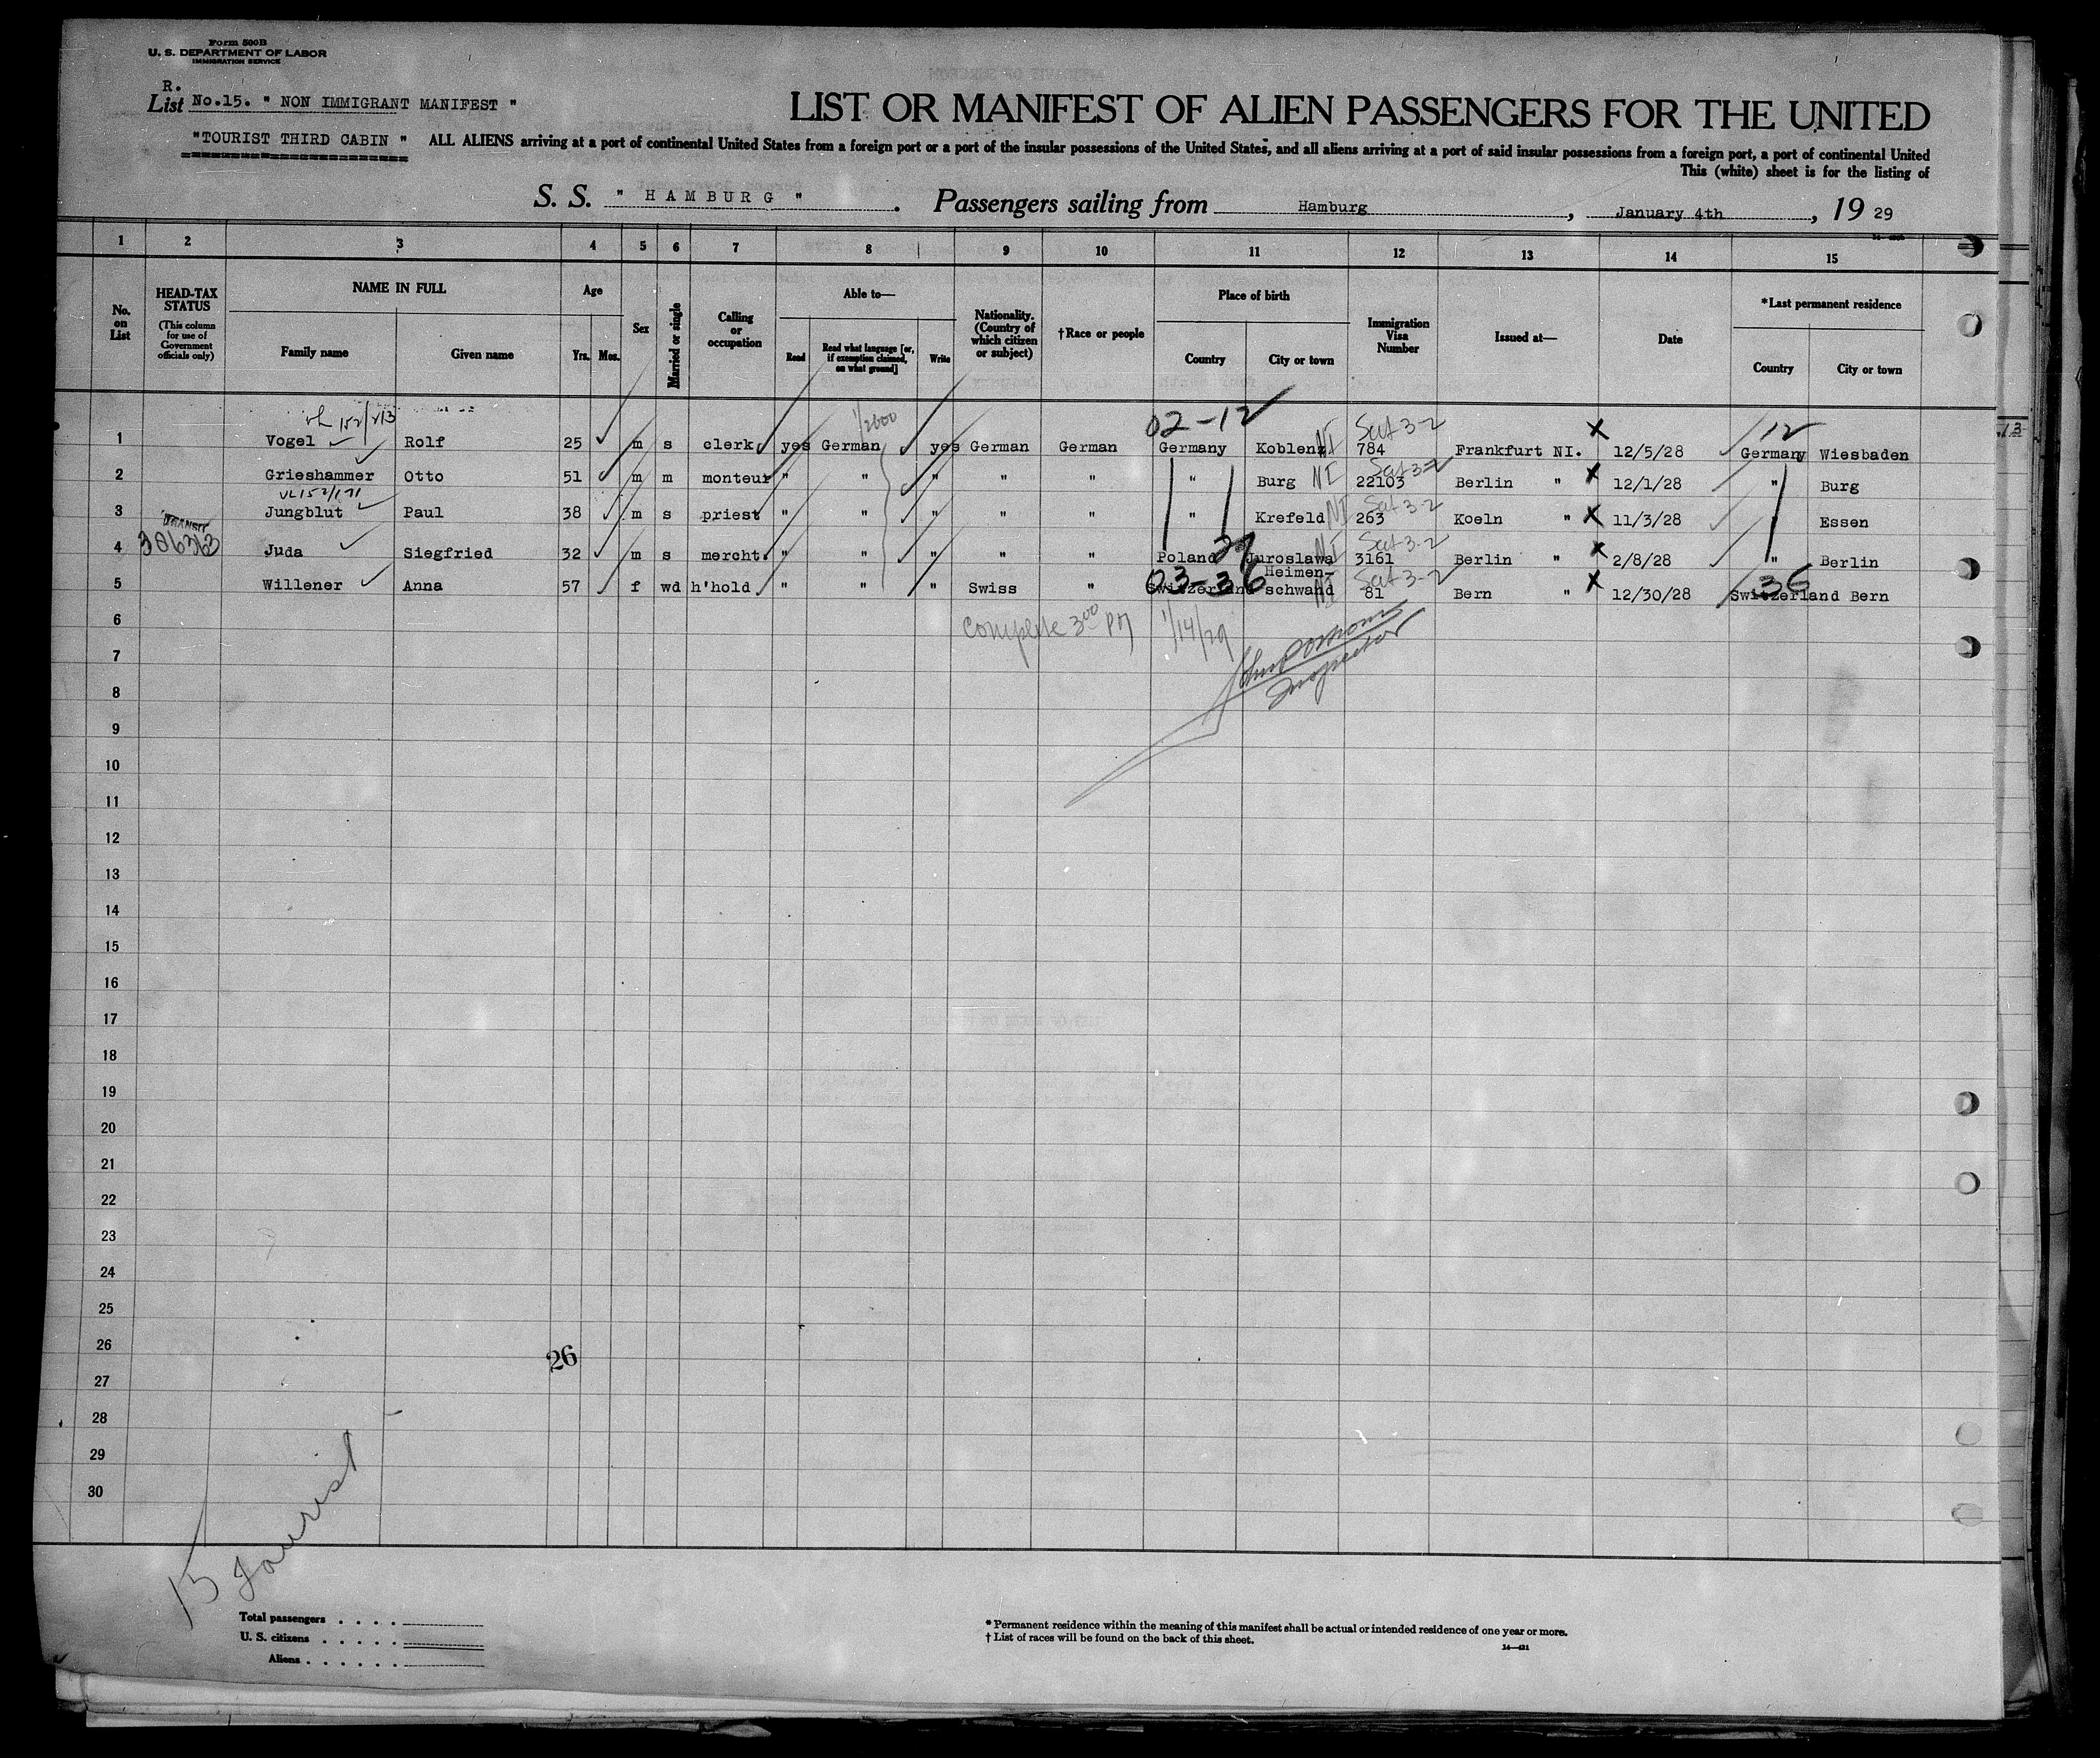 Form 500B
U. S. DEPARTMENT OF LABOR
IMMIGRATION SERVICE
R.
List No.15. " NON IMMIGRANT MANIFEST "
LIST OR MANIFEST OF ALIEN PASSENGERS FOR THE UNITED
"TOURIST THIRD CABIN "
ALL ALIENS arriving at a port of continental United States from a foreign port or a port of the insular possessions of the United States, and all aliens arriving at a port of said insular possessions from a foreign port, a port of continental United
This (white) sheet is for the listing of
S. S. " H A M B U R G " . Passengers sailing from Hamburg , January 4th , 19 29
1 2 3 4 5 6 7 8 9 10 11 12 13 14 15
No. on List
HEAD-TAX STATUS
(This column for use of Government officials only)
NAME IN FULL
Family name Given name
Age
Yrs. Mos.
Sex
Married or single
Calling or occupation
Able to—
Read Read what language [or, if exemption claimed, on what ground] Write
Nationality. (Country of which citizen or subject)
†Race or people
Place of birth
Country City or town
Immigration Visa Number
Issued at—
Date
*Last permanent residence
Country City or town
152/213 1/2600 02-12 Sect 3-2 12
1 Vogel Rolf 25 m s clerk yes German yes German German Germany Koblenz NI 784 Frankfurt NI. 12/5/28 Germany Wiesbaden
Sect 3-2
2 Grieshammer Otto 51 m m monteur " " " " " " Burg NI 22103 Berlin " 12/1/28 " Burg
VL152/171 Sect 3-2
3 Jungblut Paul 38 m s priest " " " " " " Krefeld NI 263 Koeln " 11/3/28 " Essen
TRANSIT
306363 Sect 3-2
4 Juda Siegfried 32 m s mercht. " " " " " Poland Juroslawa NI 3161 Berlin " 2/8/28 " Berlin
03-36 Heimen- Sect 3-2 36
5 Willener Anna 57 f wd h'hold " " " Swiss " Switzerland schwand NI 81 Bern " 12/30/28 Switzerland Bern
6 Complete 3 00 PM 1/14/29
7 Inspector
8
9
10
11
12
13
14
15
16
17
18
19
20
21
22
23
24
25
26
26
27
28
29
30
15 Tourist
Total passengers . . . .
U. S. citizens . . . . .
Aliens . . . . . .
* Permanent residence within the meaning of this manifest shall be actual or intended residence of one year or more.
† List of races will be found on the back of this sheet.